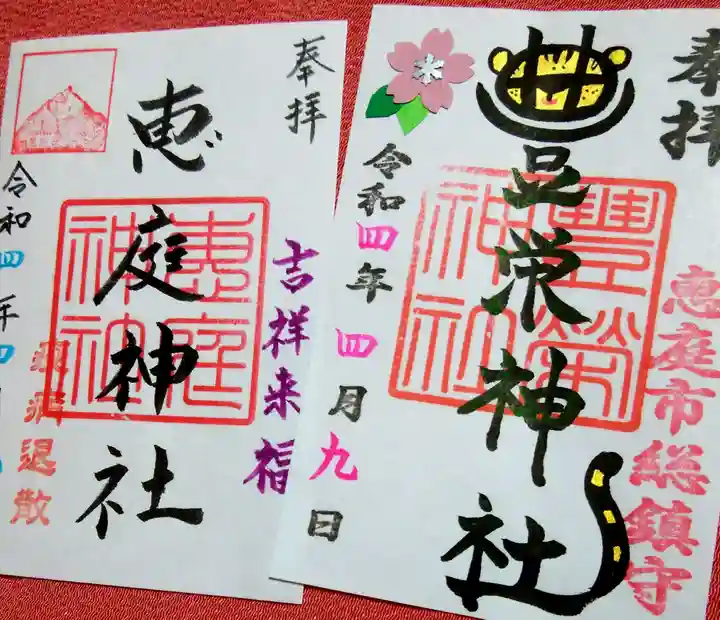 奉拝
恵庭市総鎮守
豊栄神社
豊榮
神社
令和四年四月九日
奉拝
吉祥来福
恵庭神社
恵庭
神社
疫病退散
令和四年四